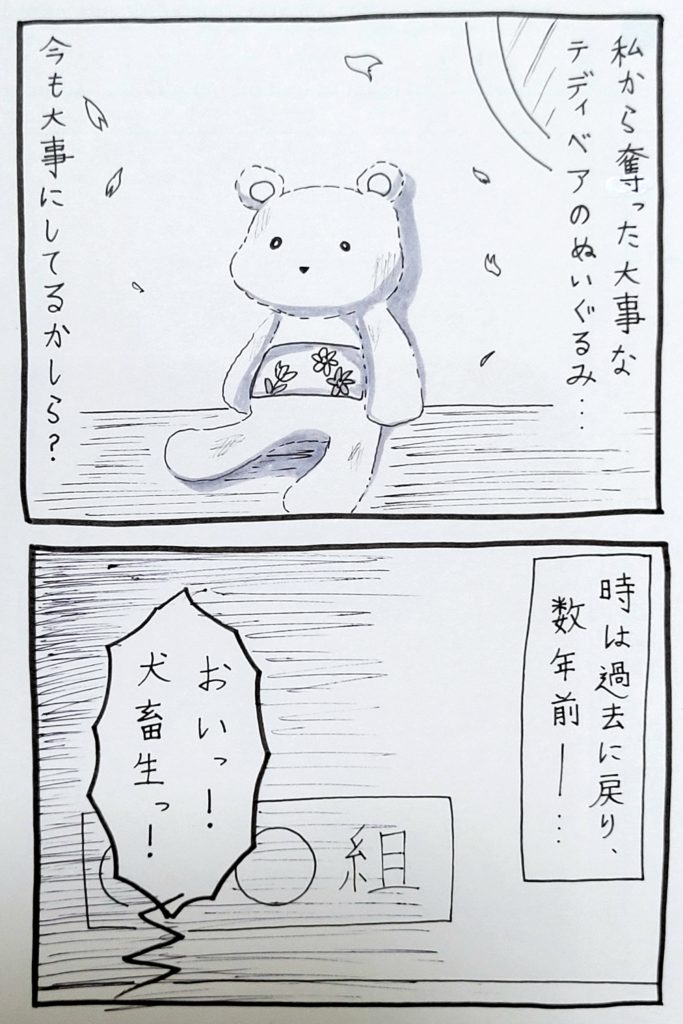 私から奪った大事な
テディベアのぬいぐるみ…
今も大事にしてるかしら?
時は過去に戻り、
数年前ー…
おいっ!
犬畜生っ!
組